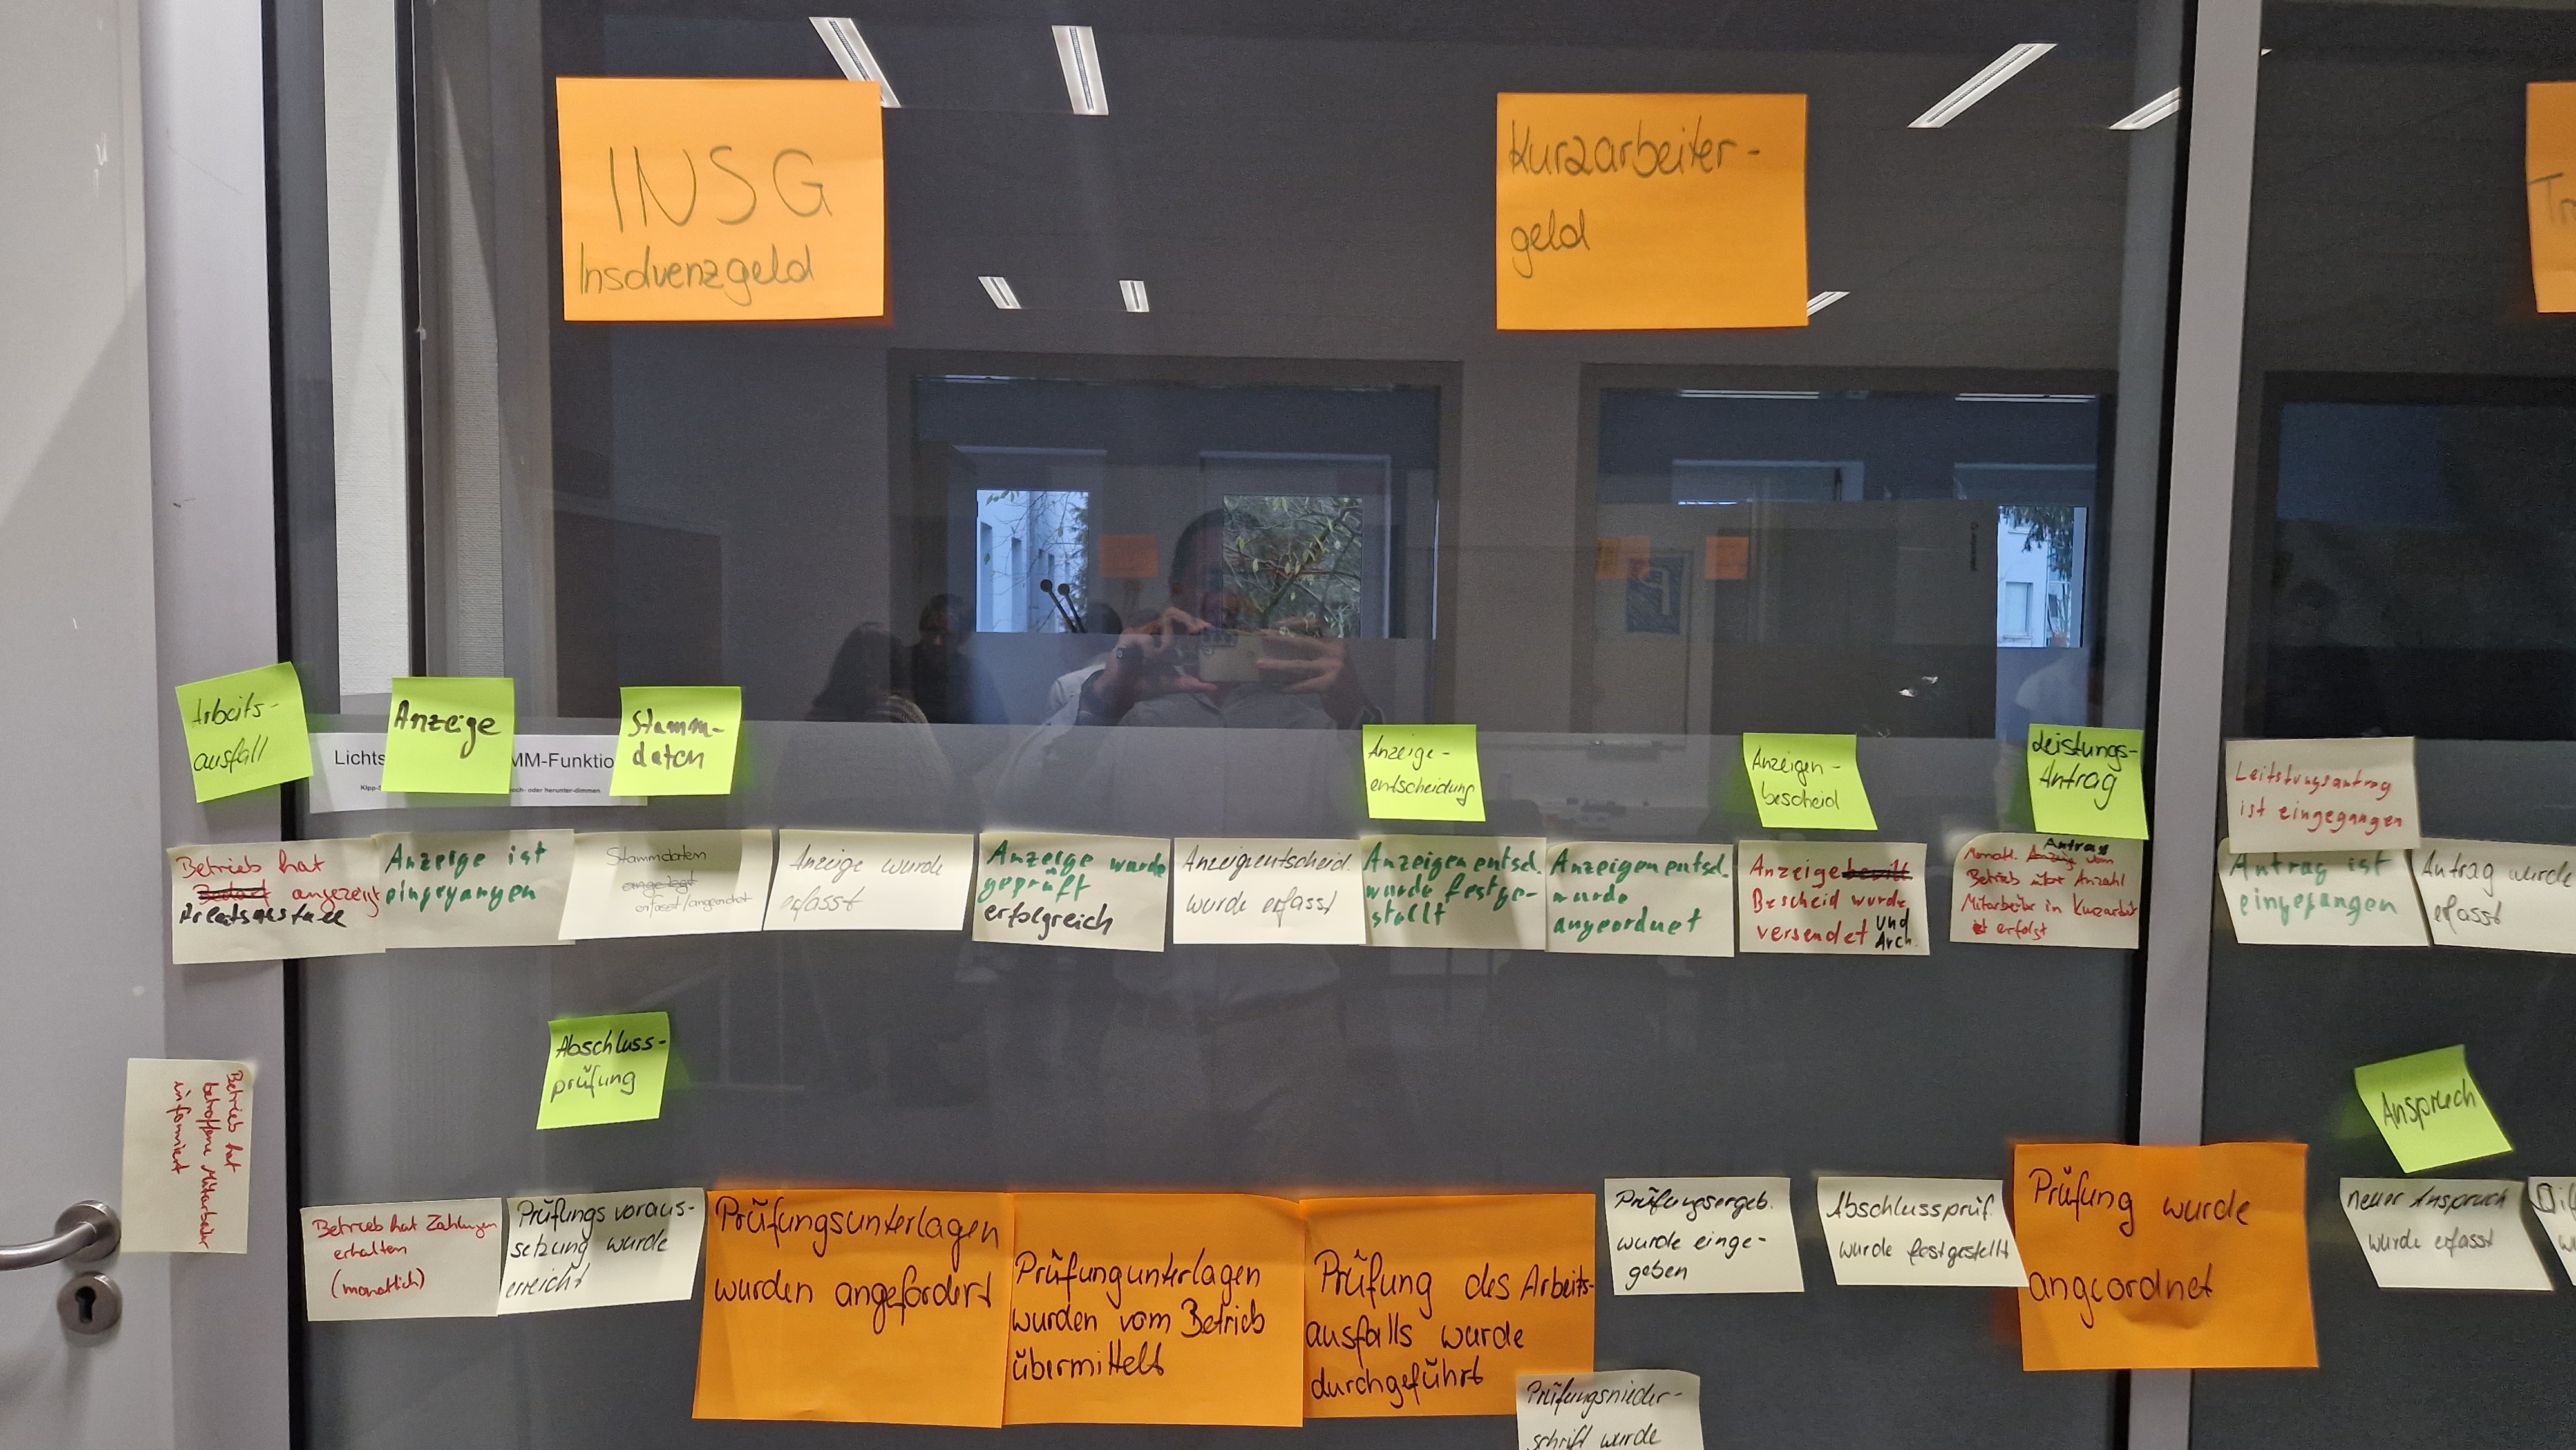 INSG
Insolvenzgeld
Kurzarbeiter-
geld
Arbeits-
ausfall
Anzeige
Stamm-
daten
Lichts
MM-Funktio
och- oder herunter-dimmen.
Anzeige-
entscheidung
Anzeigen-
bescheid
Leistungs-
Antrag
Leitstungsantrag
ist eingegangen
Betrieb hat
Bedarf angezeigt
Arbeitsausfall
Anzeige ist
eingegangen
Stammdaten
angelegt
erfasst/angeordnet
Anzeige wurde
erfasst
Anzeige wurde
geprüft
erfolgreich
Anzeigeentscheid.
wurde erfasst
Anzeigenentsch.
wurde festge-
stellt
Anzeigenentsch.
wurde
angeordnet
Anzeige bewill.
Bescheid wurde
versendet und
Arch.
Antrag
Monatl. Anzeige vom
Betrieb über Anzahl
Mitarbeiter in Kurzarbeit
ist erfolgt
Antrag ist
eingegangen
Antrag wurde
erfasst
Abschluss-
prüfung
Anspruch
Betrieb hat
betroffene Mitarbeiter
informiert
Betrieb hat Zahlungen
erhalten
(monatlich)
Prüfungsvoraus-
setzung wurde
erreicht
Prüfungsunterlagen
wurden angefordert
Prüfungunterlagen
wurden vom Betrieb
übermittelt
Prüfung des Arbeits-
ausfalls wurde
durchgeführt
Prüfungsergeb.
wurde einge-
geben
Abschlussprüf.
wurde festgestellt
Prüfung wurde
angeordnet
neuer Anspruch
wurde erfasst
Prüfungsnieder-
schrift wurde